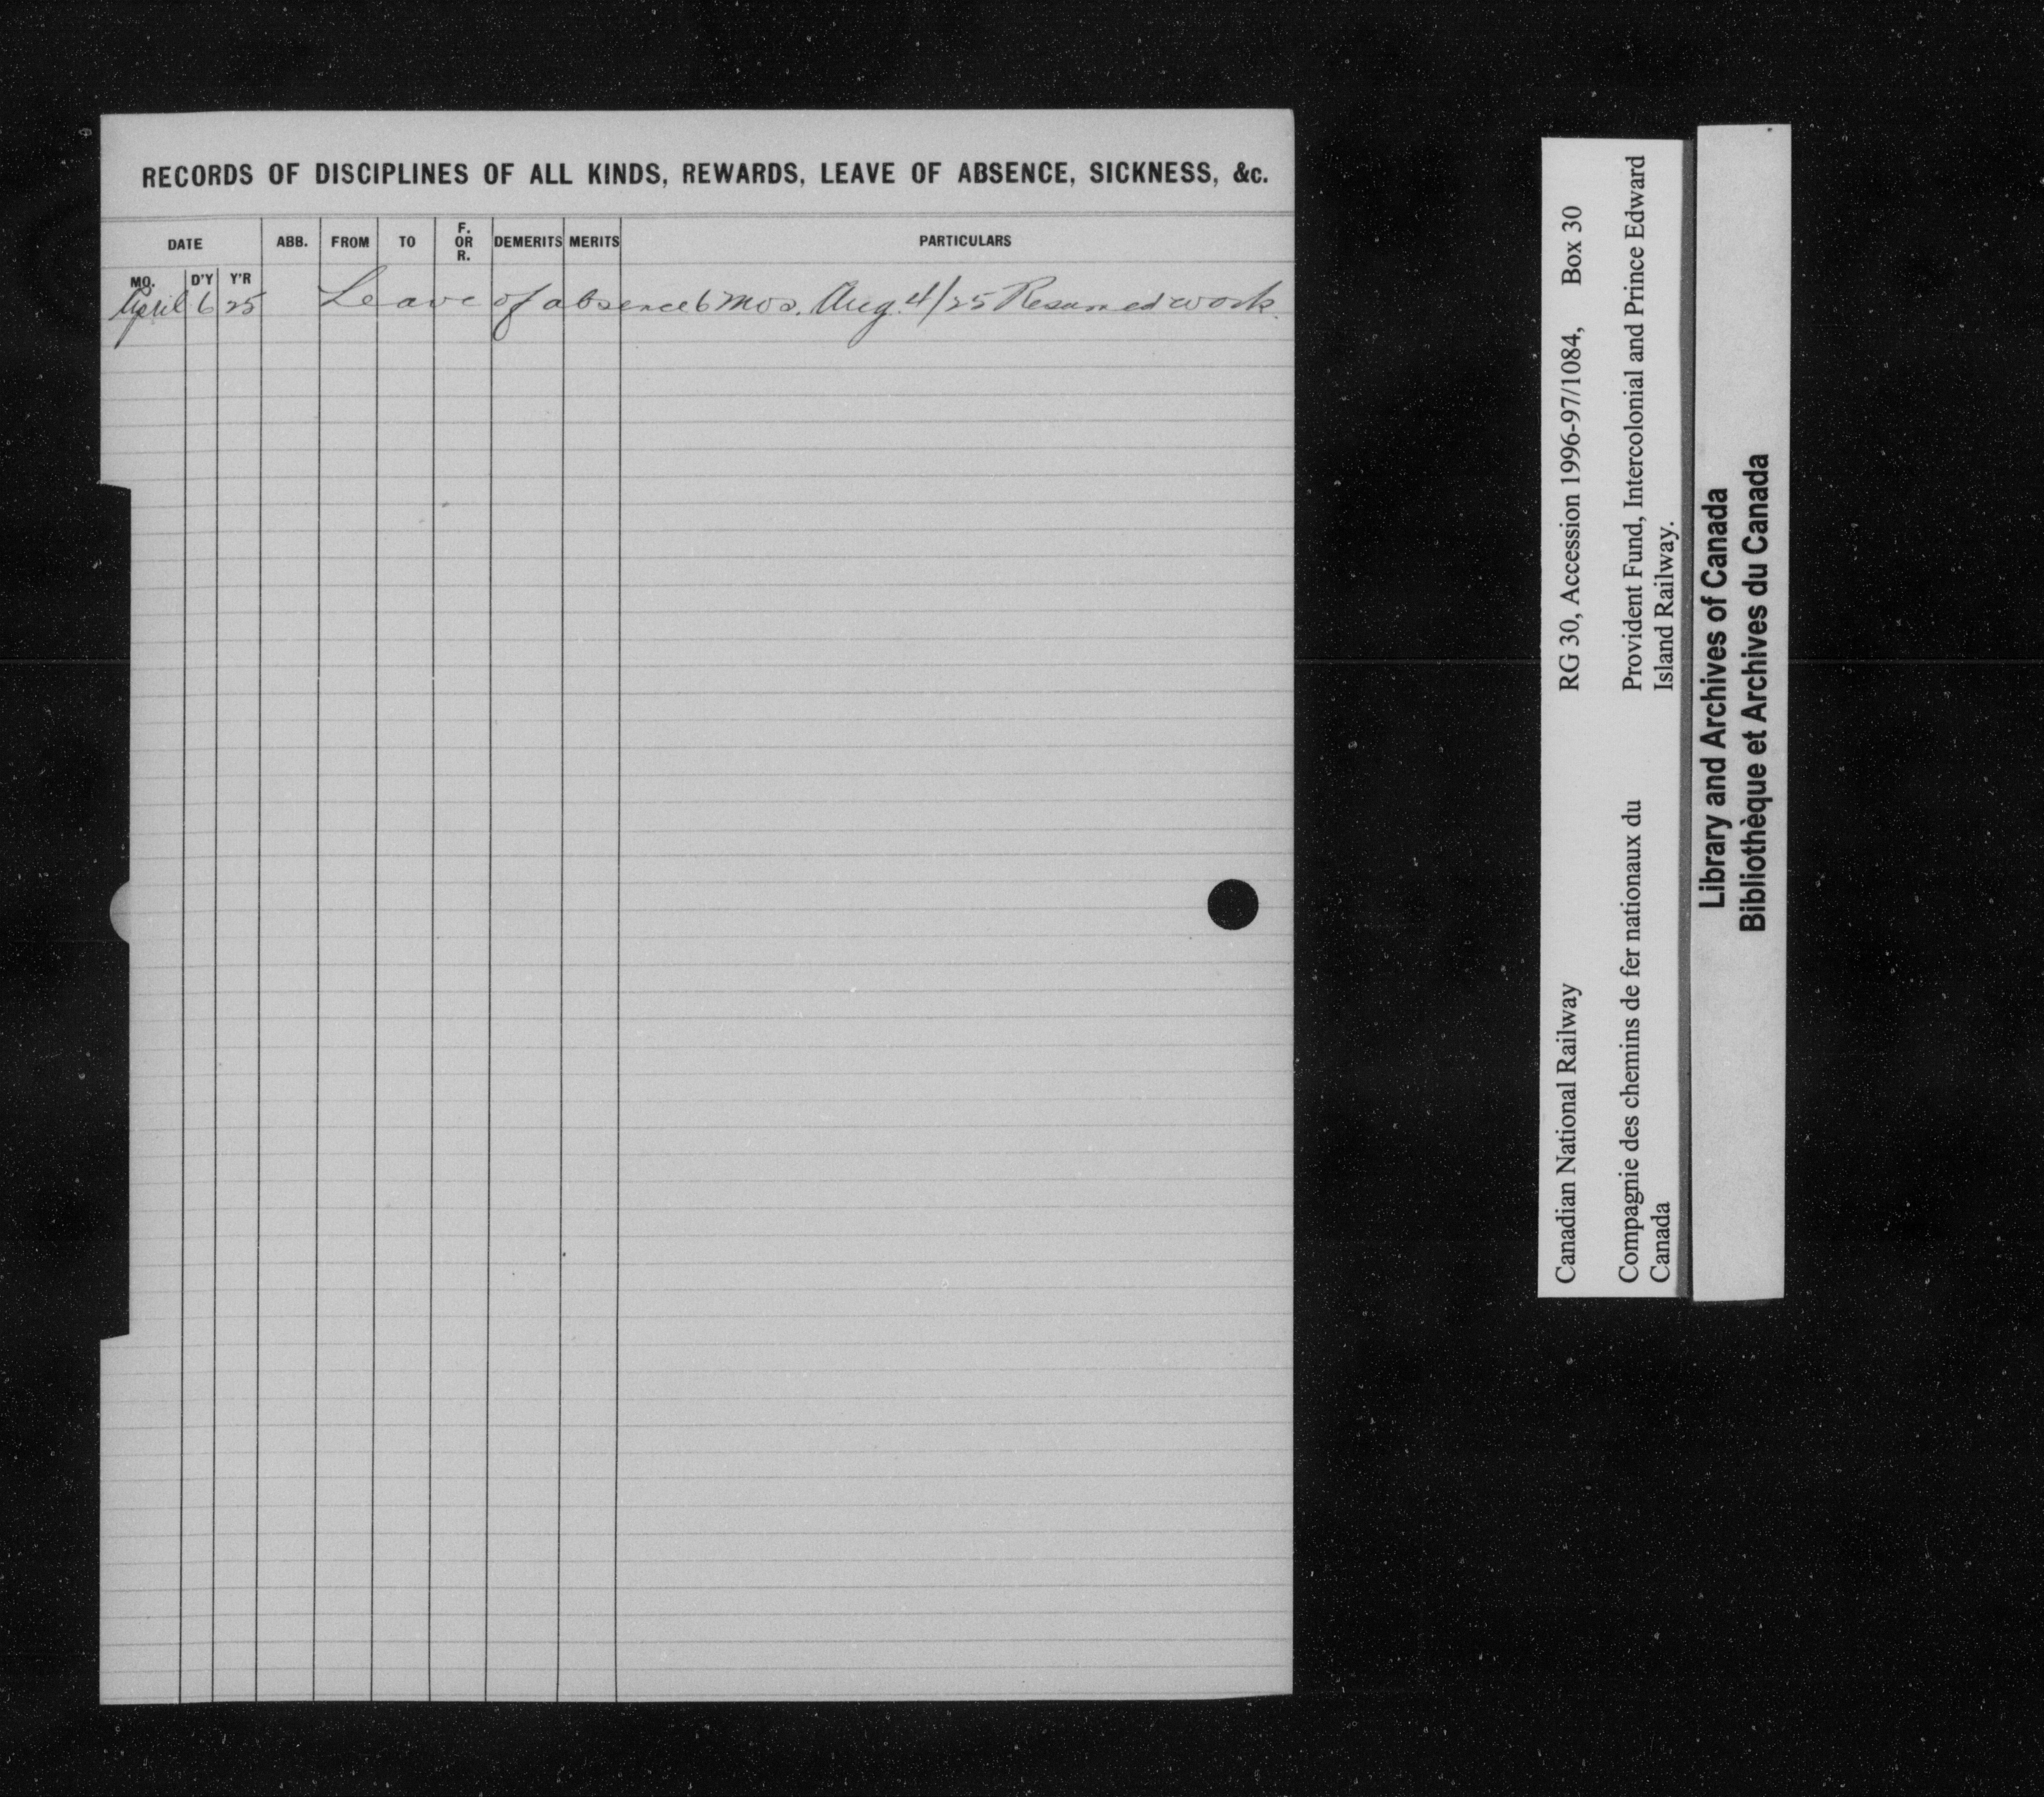 RECORDS OF DISCIPLINES OF ALL KINDS, REWARDS, LEAVE OF ABSENCE, SICKNESS, &c.
DATE ABB. FROM TO F. OR R. DEMERITS MERITS PARTICULARS
MO. D'Y Y'R
April 6 25 Leave of absence 6 mos. Aug. 4/25 Resumed work.
Canadian National Railway RG 30, Accession 1996-97/1084, Box 30
Compagnie des chemins de fer nationaux du Provident Fund, Intercolonial and Prince Edward
Canada Island Railway.
Library and Archives of Canada
Bibliothèque et Archives du Canada